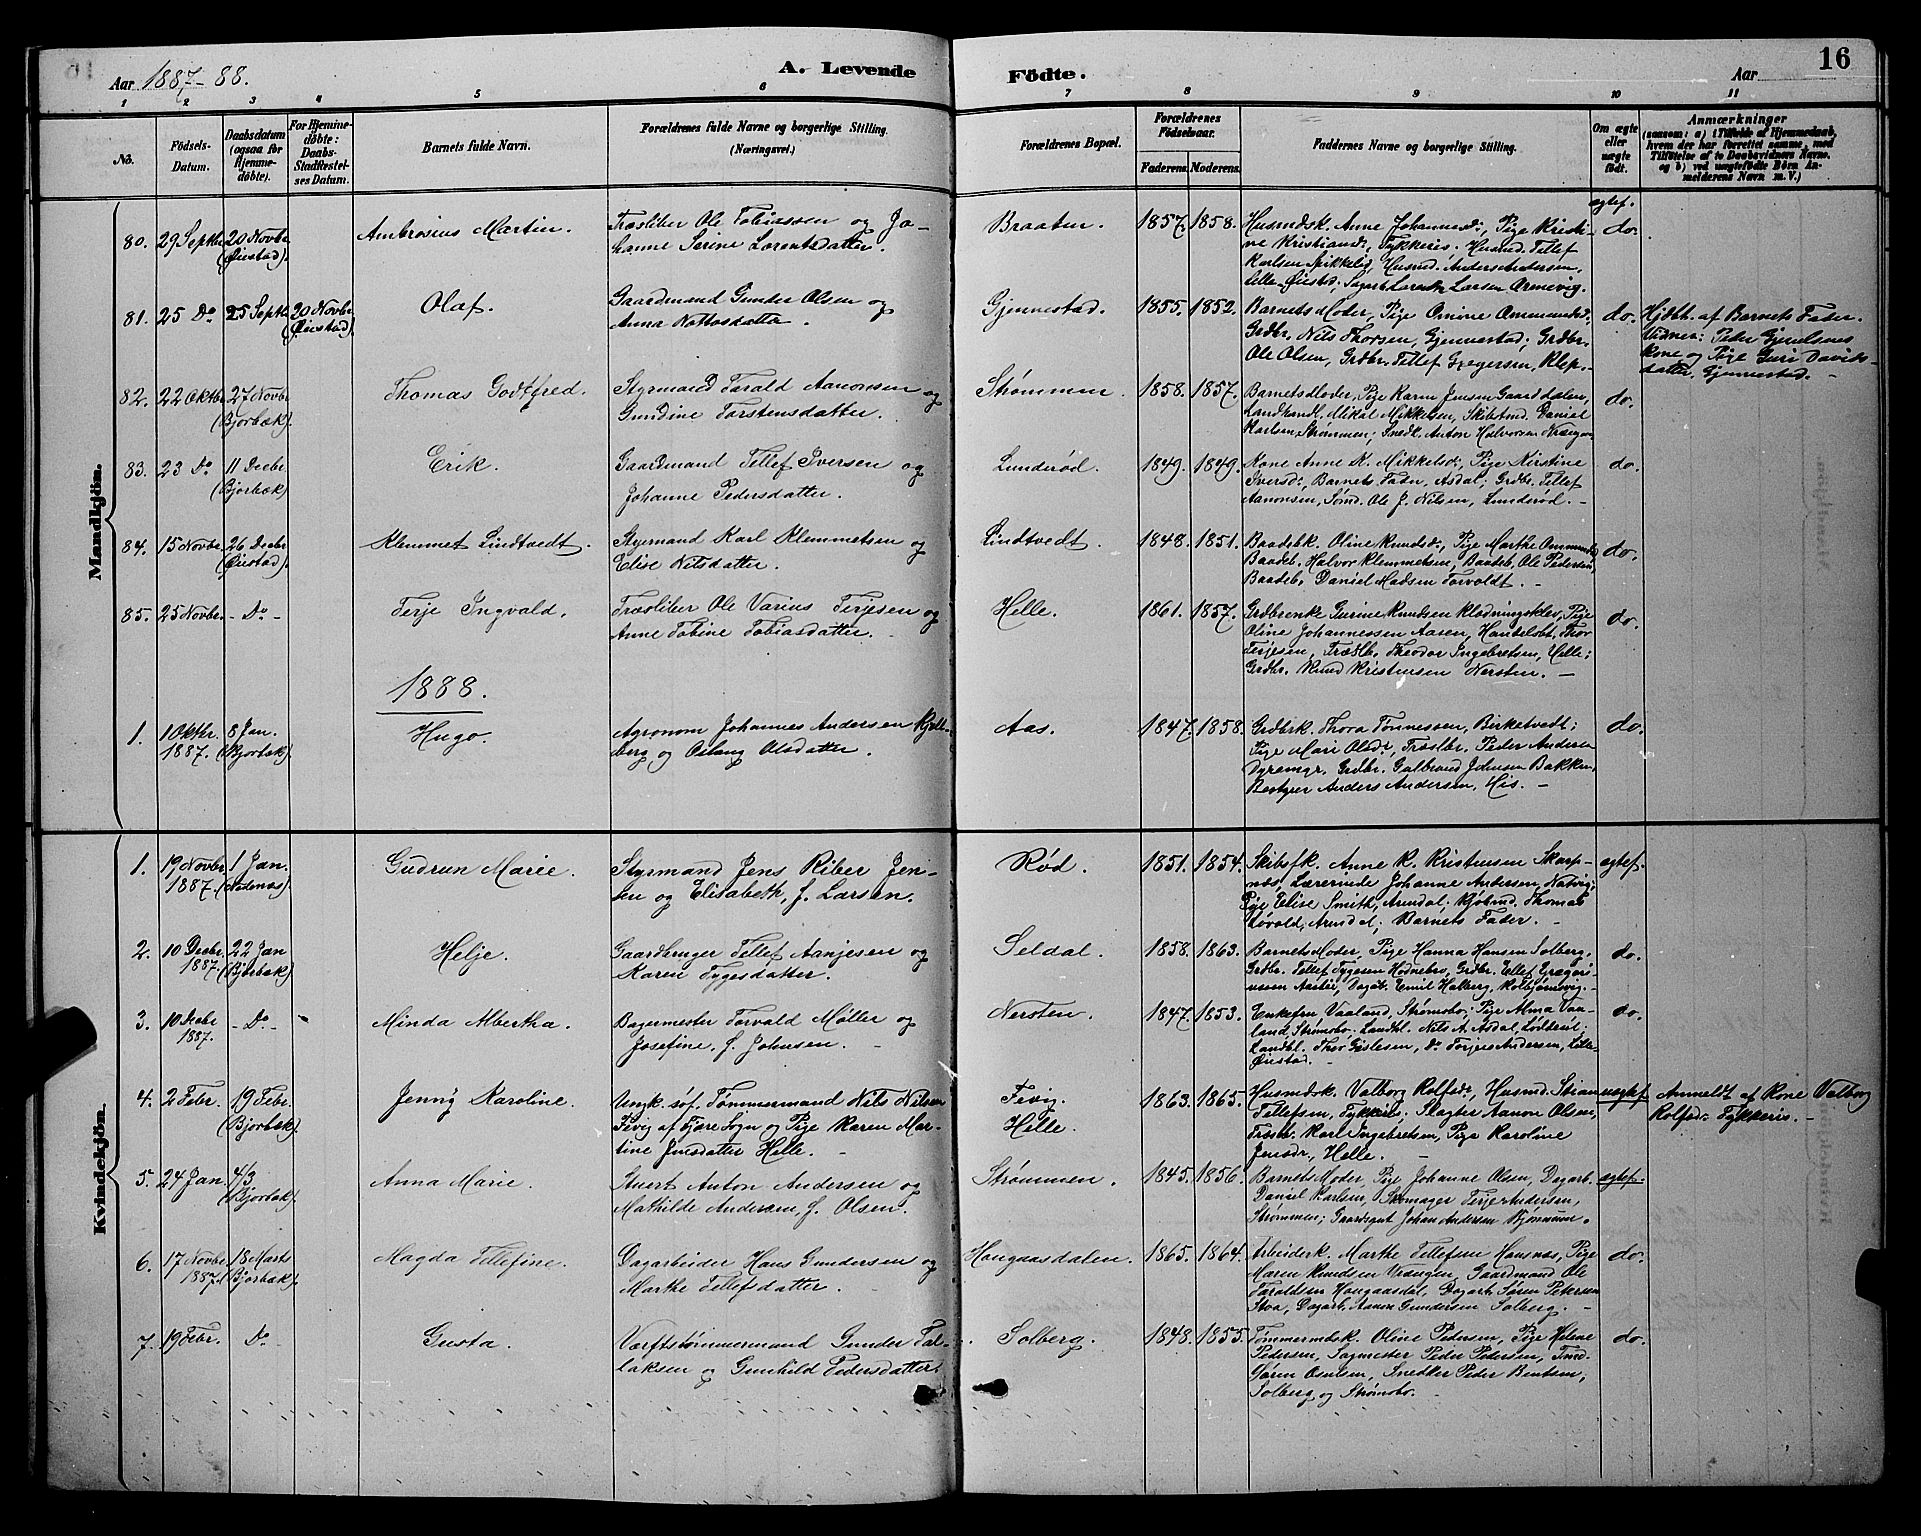 Aar 1887-88.
A. Levende Födte.
Aar
16
1 2 3 4 5 6 7 8 9 10 11
No.
Födsels-Datum.
Daabsdatum (ogsaa for Hjemme-döbte).
For Hjemme-döbte: Daabs-Stadfæstel-ses Datum.
Barnets fulde Navn.
Forældrenes fulde Navne og borgerlige Stilling. (Næringsvei.)
Forældrenes Bopæl.
Forældrenes Födselsaar.
Faderens. Moderens.
Faddernes Navne og borgerlige Stilling.
Om ægte eller uægte födt.
Anmærkninger
(saasom: a) i Tilfælde af Hjemmedaab, hvem der har forrettet samme, med Tilföielse af to Daabsvidners Navne, og b) ved uægtefödte Börn An-melderens Navn m. V.)
Mandkjön.
ægtef.
80. 29 Septb. 20 Novbr (Øiestad). Ambrosius Martin. Træsliber Ole Tobiassen og Jo-
hanne Serine Lorentsdatter. Braaten. 1857. 1858. Husmdsk. Anne Johannesd., Pige Kristi-
ne Kristiansd., Tykkeris. Husmd. Tellef
Karlsen Spikkelid, Husmd. Anders Andersen,
Lille Øiestad; Sagarb. Lorents Larsen Ormevig. do.
81. 25 Do 25 Septb. 20 Novbr (Øiestad). Olaf. Gaardmand Gunder Olsen og
Anna Nottosdatter. Gjennestad. 1855. 1852. Barnets Moder, Pige Omine Ommundsd.,
Grdbr. Nils Thorsen, Gjennestad; Grdbr.
Ole Olsen, Grdbr. Tellef Gregersen, Klep. do. Hjdbt. af Barnets Fader.
Vidner: Peder Gjendsens
Kone og Pige Guri Davids-
datter, Gjennestad.
82. 22 Oktbr 27 Novbr (Bjorbæk). Thomas Godtfred. Styrmand Tarald Aanonsen og
Gundine Torstensdatter. Strømmen. 1858. 1857. Barnets Moder, Pige Karen Jensen Gaarddalen,
Landhandl. Mikal Mikkelsen, Skibstmd. Daniel
Karlsen, Strømmen; Snedk. Anton Halvorsen Vrængen. do.
83. 23 Do 11 Decbr. (Bjorbæk) Erik. Gaardmand Tellef Iversen og
Johanne Pedersdatter. Lunderød. 1849. 1849. Kone Anne K. Mikkelsd., Pige Kirstine
Iversd., Barnets Fader, Asdal; Grdbr. Tellef
Aanonsen, Sømd. Ole J. Nilsen, Lunderød. do.
84. 15 Novbr. 26 Decbr (Øiestad). Klemmet Lindtvedt. Styrmand Karl Klemmetsen og
Elise Nilsdatter. Lindtvedt. 1848. 1851. Baadsbk. Oline Knudsd., Pige Marthe Ommundsd.
Baadsb. Halvor Klemmetsen, Baadsb. Ole Pedersen,
Baadsb. Daniel Madsen Torvoldt. do.
85. 25 Novbr. - Do - Terje Ingvald. Træsliber Ole Varius Terjesen og
Anne Tobine Tobiasdatter. Helle. 1861. 1857. Grdbrenke Gurine Knudsen Klodningsklev, Pige
Oline Johannessen Aasen, Handelsbt. Thor
Terjesen, Trædlb. Theodor Ingebretsen, Helle;
Grdbr. Knud Kristensen Nersten. do.
1888.
1. 1 Oktbr. 1887. 8 Jan. (Bjorbæk). Hugo. Agronom Johannes Andersen
berg og Aslaug Olsdatter. Aas. 1847. 1858. Grdbrk. Thora Tønnessen, Birketvedt;
Pige Mari Olsdr., Træslbr. Peder Andersen
Dyremyr. Grdbr. Gulbrand Johnsen Bakken,
Bestyrer Anders Andersen, His. do.
Kvindekjön.
1. 19 Novbr 1887. 1 Jan. (Nedenæs). Gudrun Marie. Styrmand Jens Riber Jen-
sen og Elisabeth, f. Larsen. Rød. 1851. 1854. Skibsfk. Anne K. Kristensen Skarp-
næs, Lærerinde Johanne Andersen, Natvig;
Pige Elise Smith, Arendal; Kjøbmd. Thomas
Løvold, Arendal; Barnets Fader. ægtef.
2. 10 Decbr. 1887. 22 Jan (Bjorbæk). Helje. Gaardbruger Tellef Aanjesen og
Karen Tygesdatter. Seldal. 1858. 1863. Barnets Moder, Pige Hanna Hansen Solberg.
Grdbr. Tellef Tygesen Hodnebro, Grdbr. Tellef Gregeri-
ussen Aarlie, Dagab. Emil Halberg, Kolbjørnsvig. do.
3. 10 Decbr 1887. - Do - Minda Albertha. Bagermester Torvald Møller og
Josefine, f. Johnsen. Nersten. 1847. 1853. Enkefru Vaaland, Strømsbo; Pige Alma Vaa-
land, Strømsbo. Landbl. Nils A. Asdal, Løddesøl;
Landbl. Thor Gislesen, Do Terjes Andersen, Lille
Øiestad. do.
4. 2 Febr. 19 Febr. (Bjorbæk). Jenny Karoline. Ungk. søf. Tømmermand Nils Nilsen
Fevig af Fjære Sogn og Pige Karen Mar-
tine Jensdatter Helle. Fevig.
Helle. 1863. 1865. Husmdsk. Valborg Rolfsdr., Husmd. Stian
Tellefsen, Tykkeris; Slagter Aanon Olsen,
Træslb. Karl Ingebretsen, Pige Karoline
Jensdr., Helle. uægtef. Anmeldt af Kone Valborg
Rolfsdr. Tykkeris.
5. 24 Jan. 4/3 (Bjorbæk). Anna Marie. Stuert Anton Andersen og
Mathilde Andersen, f. Olsen. Strømmen. 1845. 1856. Barnets Moder, Pige Johanne Olsen, Dagarb.
Daniel Karlsen, Skomager Terje Andersen,
Strømmen; Gaardsgut Johan Andersen Bjønnum. ægtef.
6. 17 Novbr. 1887. 18 Marts (Bjorbæk). Magda Tellefine. Dagarbeider Hans Gundersen og
Marthe Tellefsdatter. Haugaasdalen. 1865. 1864. Arbeiderk. Marthe Tellefsen Hansnæs, Pige
Maren Knudsen Vrængen, Gaardmand Ole
Taraldsen Haugaasdal, Dagarb. Søren Petersen
Stoa, Dagarb. Aanen Gundersen Solberg. do.
7. 19 Febr. Do Gusta. Værftstømmermand Gunder Tal-
laksen og Gunhild Pedersdatter. Solberg. 1848. 1855. Tømmermdsk. Oline Pedersen, Pige Helene
Pedersen, Sagmester Peder Pedersen, Tmd.
Søren Osulsen, Snedker Peder Bentsen,
Solberg og Strømsbo. do.